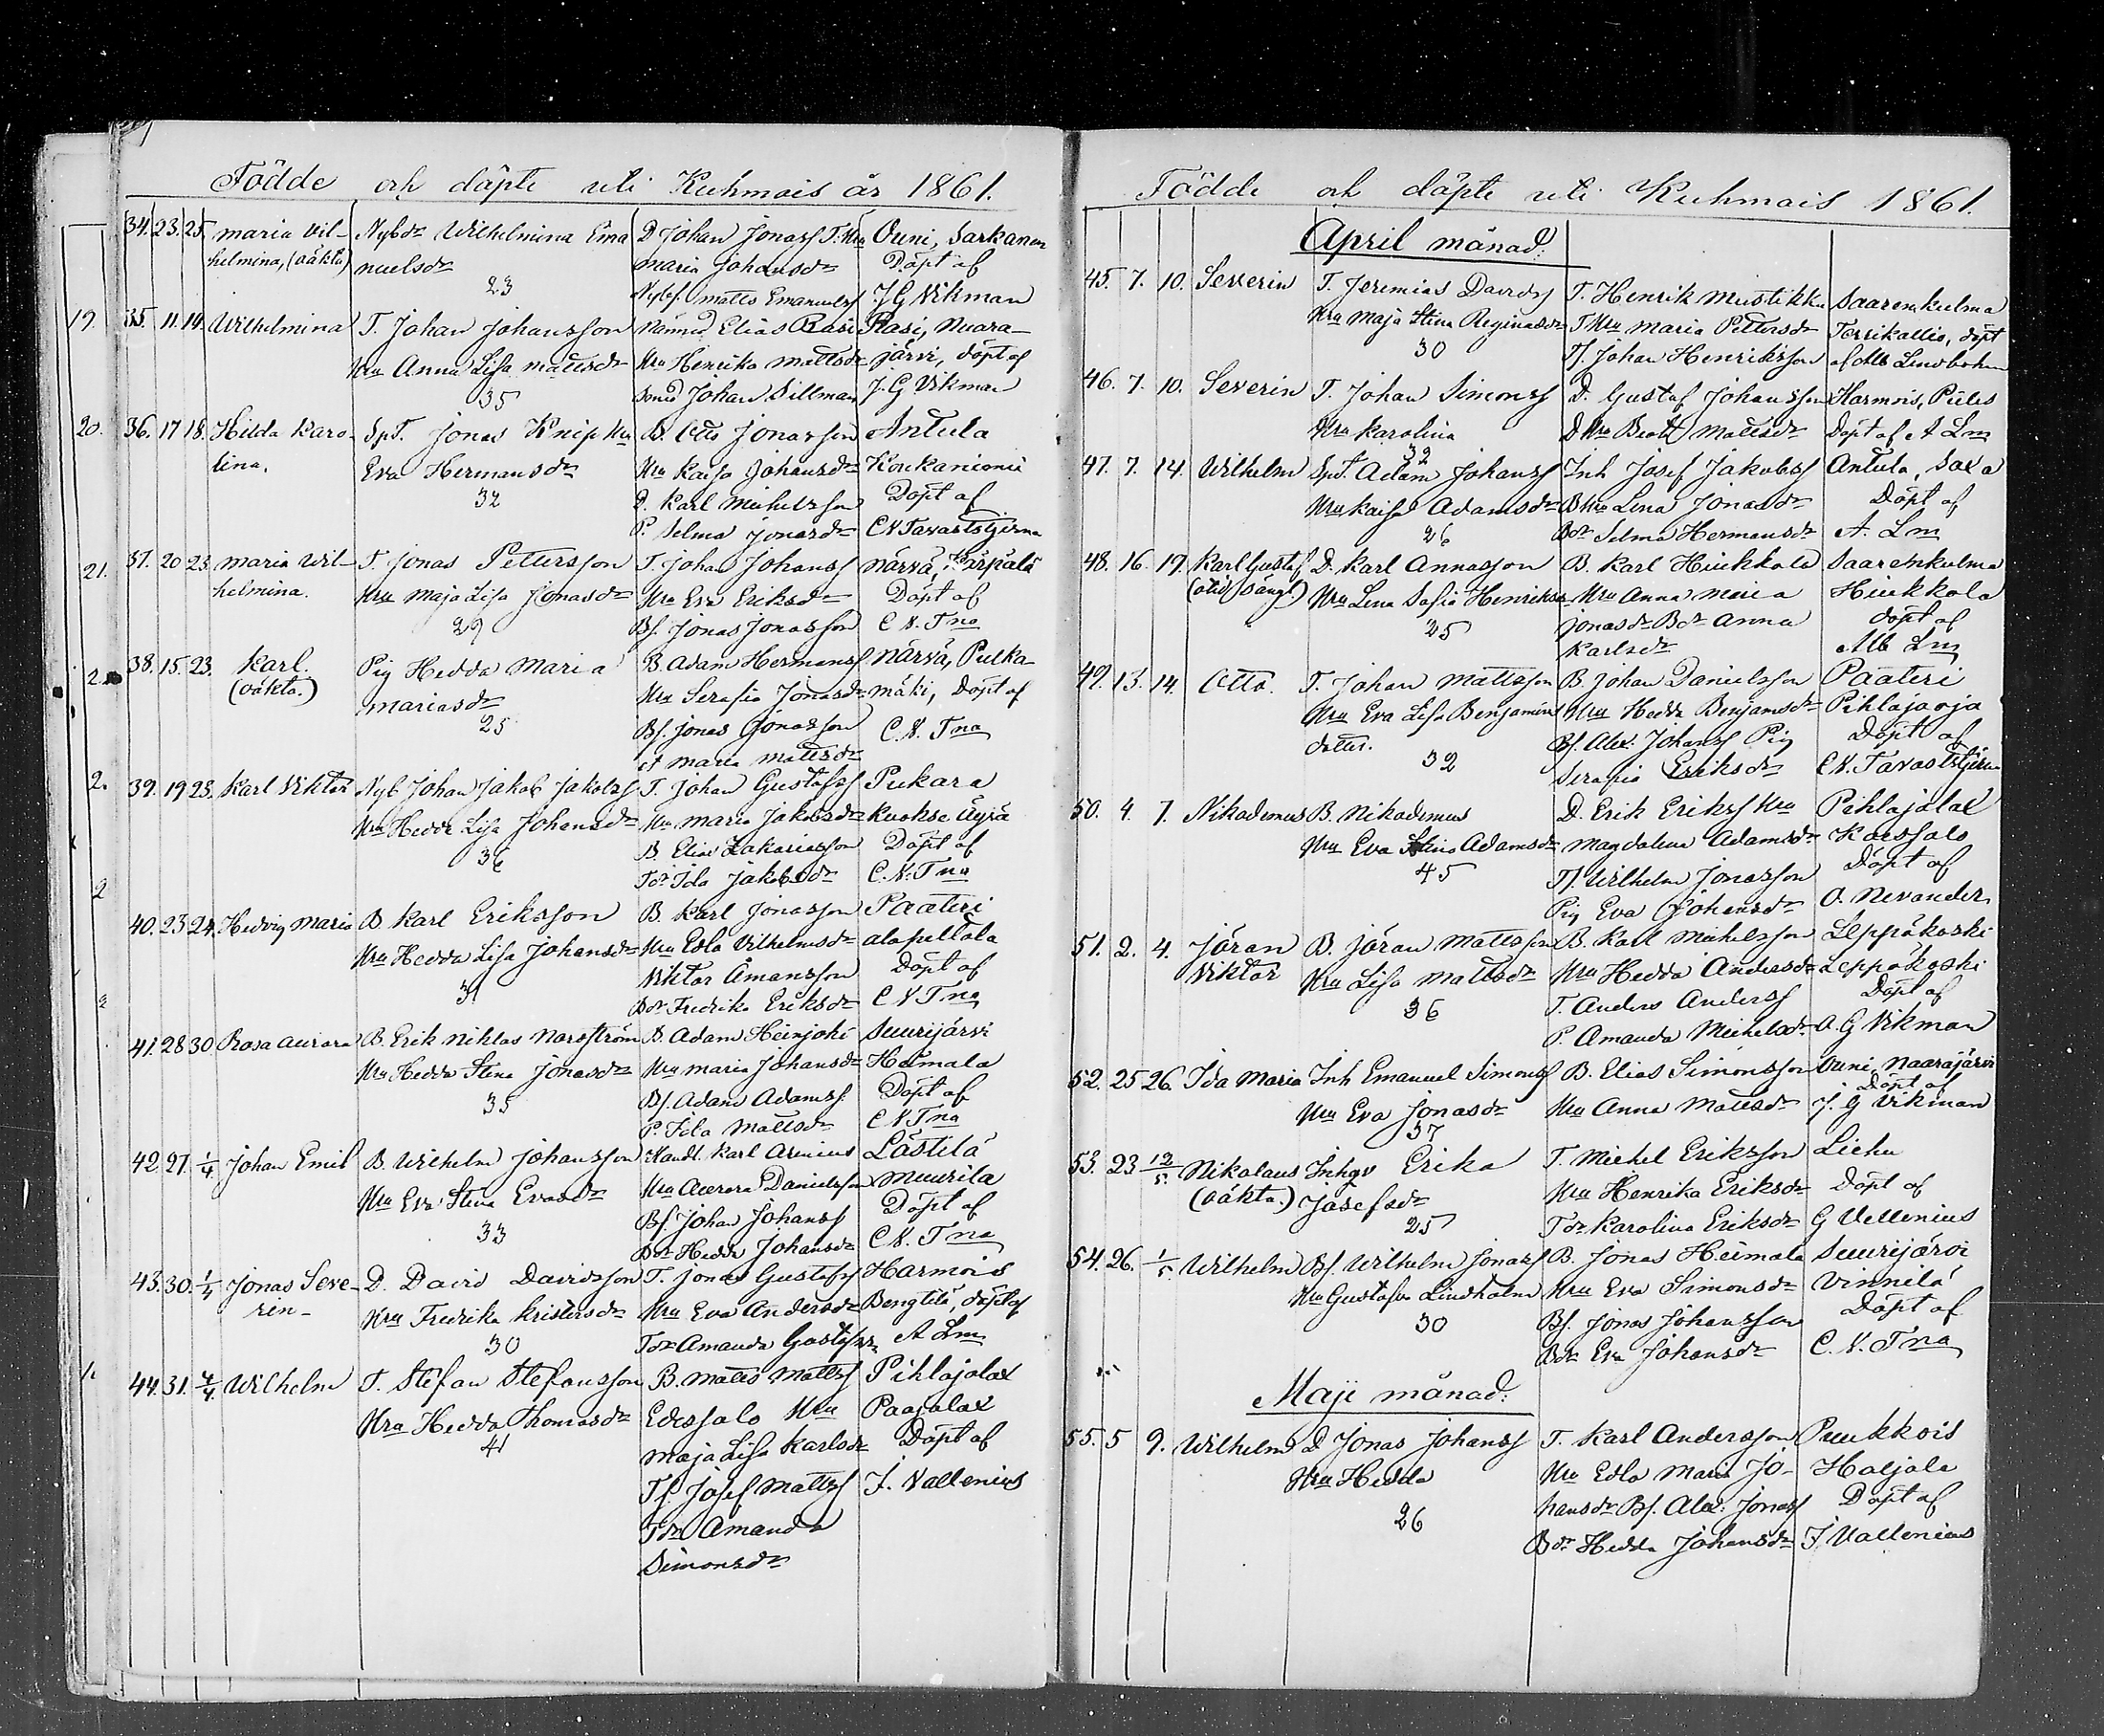 Födde och döpte uti Kuhmois år 1861.
34. 23. 25. Maria Vil- Nybdr Wilhelmina Ema D Johan Jonass T. Hru Ouni, Sarkanen
helmina, (oäkta) nuelsdr Maria Johansdr Döpt af
23 Nybs. Matts Emanuelss J G Vikman
19. 35. 11. 14. Wilhelmina T. Johan Johansson Nämnd Elias Rasi Rasi, Nuara-
Hru Anna Lisa Mattsdr Hru Henrika Mattsdr järvi, döpt af
35 Johan Sillman J. G Vikman
20. 36. 17 18. Hilda Karo- SpT. Jonas Knip Hru B. Otto Jonasson Antula
lina. Eva Hermansdr Hru Kaisa Johansdr Koukanionii
32 D. Karl Michelsson Döpt af
P. Selma Jonasdr C N Tavaststjerna
21. 37. 20 23. Maria Wil- T. Jonas Pettersson T. Johan Johanss Närvä, Kärpälä
helmina. Hru Maja Lisa Jonasdr Hru Eva Eriksdr Döpt af
29 Bs. Jonas Jonasson C N. Tna
38. 15. 23. Karl. Pig Hedda Maria B. Adam Hermanss Närvä, Pulka-
(oäkta.) Mariasdr Hru Serafia Jonasdr mäki, Döpt af
25 Bs. Jonas Jonasson C. N. Tna
et Maria Mattsdr
2. 39. 19 23. Karl Viktor Nyb Johan Jakob Jakobss T. Johan Gustafss Pukara
Hru Hedda Lisa Johansdr Hru Maria Jakobsdr Kuokse äyrä
36 B. Elias Zakariasson Döpt af
Tdr Ida Jakobsdr C. N. Tna
2
40. 23 24. Hedvig Maria B Karl Eriksson B. Karl Jonasson Paateri
Hru Hedda Lisa Johansdr Hru Edla Vilhelmsdr alapeltola
31 Viktor Åmansson Döpt af
Bdr Fredrika Eriksdr C N Tna
41. 28 30 Rosa Aurora B. Erik Niklas Nordström B. Adam Heinjoki Suurijärvi
Hru Hedda Stina Jonasdr Hru Maria Johansdr Heimala
35 Bs. Adam Adamss Döpt af
P. Ida Mattsdr C N Tna
42. 27. 1/4 Johan Emil B. Wilhelm Johansson Handl. Karl Arenius Lästilä
Hru Eva Stina Evasdr Hru Aurora Danielsson Muurila
33 Bs. Johan Johanss Döpt af
Bdr Hedda Johansdr C N. Tna
43. 30. 1/4 Jonas Seve- D. David Davidsson T. Jonas Gustafss Harmois
rin- Hru Fredrika Kristersdr Hru Eva Andersdr Bengtilä, döpt af
30 Tdr Amanda Gustafsdr A Lm
44. 31. 4/4 Wilhelm T. Stefan Stefansson B. Matts Mattss Pihlajalax
Hru Hedda Thomasdr Edessalo Hru Paajalax
41 Maja Lisa Karlsdr Döpt af
Ts. Josef Mattss J. Vallenius
Tdr Amanda
Simonsdr
Födde och döpte uti Kuhmois 1861.
April månad.
45. 7. 10. Severin T. Jeremias Davidss T. Henrik Mustikka Saarenkulma
Hru Maja Stina Reginasdr T Hru Maria Pettersdr Terrikallio, döpt
30 Ts. Johan Henriksson af Alb Lindbohm
46. 7. 10. Severin T. Johan Simonss D. Gustaf Johansson Harmois, Pieles
Hru Karolina D Hru Beata Mattsdr Döpt af A Lm
32
47. 7. 14. Wilhelm SpT. Adam Johanss Inh Josef Jakobss Antula, Saxa
Hru Kaisa Adamsdr B Hru Lena Jonasdr Döpt af
26 Bdr Selma Hermansdr A. Lm
48. 16. 17. Karl Gustaf D. Karl Annasson B. Karl Hiukkola Saarenkulma
Hru Lena Sofia Henriksdr Hru Anna Maria Hiukkola
25 Jonasdr Bdr Anna döpt af
Karlsdr Alb Lm
49. 13. 14. Otto. T. Johan Mattsson B Johan Danielsson Paateri
Hru Eva Lisa Benjamins Hru Hedda Benjamsdr Pihlajaoja
dotter. Bs. Alex. Johanss Pig Döpt af
32 Serafia Eriksdr C N. Tavaststjerna
50. 4 7. Nikodemus B. Nikodemus D. Erik Erikss Hru Pihlajalax
Hru Eva Stina Adamsdr Magdalena Adamsdr Kaessalo
45 Ts. Wilhelm Jonasson Döpt af
Pig Eva Johansdr O. Nevander
51. 2. 4. Jöran B. Jöran Mattsson B. Karl Michelsson Leppäkoski
Viktor Hru Lisa Mattsdr Hru Hedda Andersdr Leppäkoski
36 T. Anders Anderss Döpt af
P. Amanda Michelsdr A. G Vikman
52. 25 26. Ida Maria Inh Emanuel Simonss B. Elias Simonsson Ouni, Naarajärvi
Döpt af
Hru Eva Jonasdr Hru Anna Mattsdr J. G Vikman
37
53. 23 12/5 Nikolaus Inhqv Erika T. Michel Eriksson Liehu
(oäkta.) Josefsdr Hru Henrika Eriksdr Döpt af
25 Tdr Karolina Eriksdr G Vellenius
54. 26. 1/5 Wilhelm Bs. Wilhelm Jonass B. Jonas Heimala Suurijärvi
Hru Gustafva Lindholm Hru Eva Simonsdr Vinnilä
30 Bs. Jonas Johansson Döpt af
Bdr Eva Johansdr C. N. Tna
Maji månad.
55. 5 9. Wilhelm D Jonas Johanss T. Karl Andersson Puukkois
Hru Hedda Hru Edla Maria Jo- Haljala
26 hansdr Bs. Alex. Jonass Döpt af
Bdr Hedda Johansdr J Vallenius